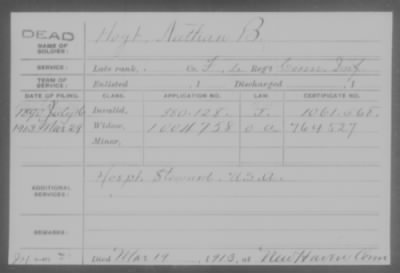 DEAD
NAME OF SOLDIER: Hoyt, Nathan B.
SERVICE: Late rank, Co. F, 6 Reg't Conn. Inf.
TERM OF SERVICE: Enlisted , 1 Discharged , 1
DATE OF FILING. CLASS. APPLICATION NO. LAW. CERTIFICATE NO.
1890 July Invalid,
1913 Mar 29 Widow, 764527
Minor,
ADDITIONAL SERVICES: Hosp'l Steward U.S.A.
REMARKS:
Died Mar 19, 1913, at New Haven Conn